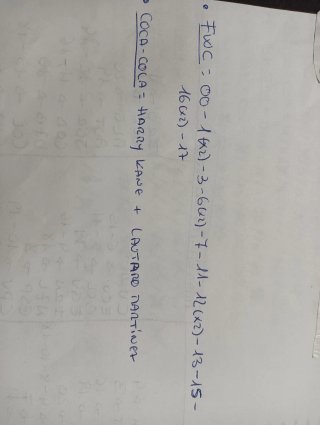 • FWC = 00 - 1(x2) - 3 - 6(x2) - 7 - 11 - 12(x2) - 13 - 15 -
16(x2) - 17
• COCA-COLA = HARRY KANE + LAUTARO MARTÍNEZ